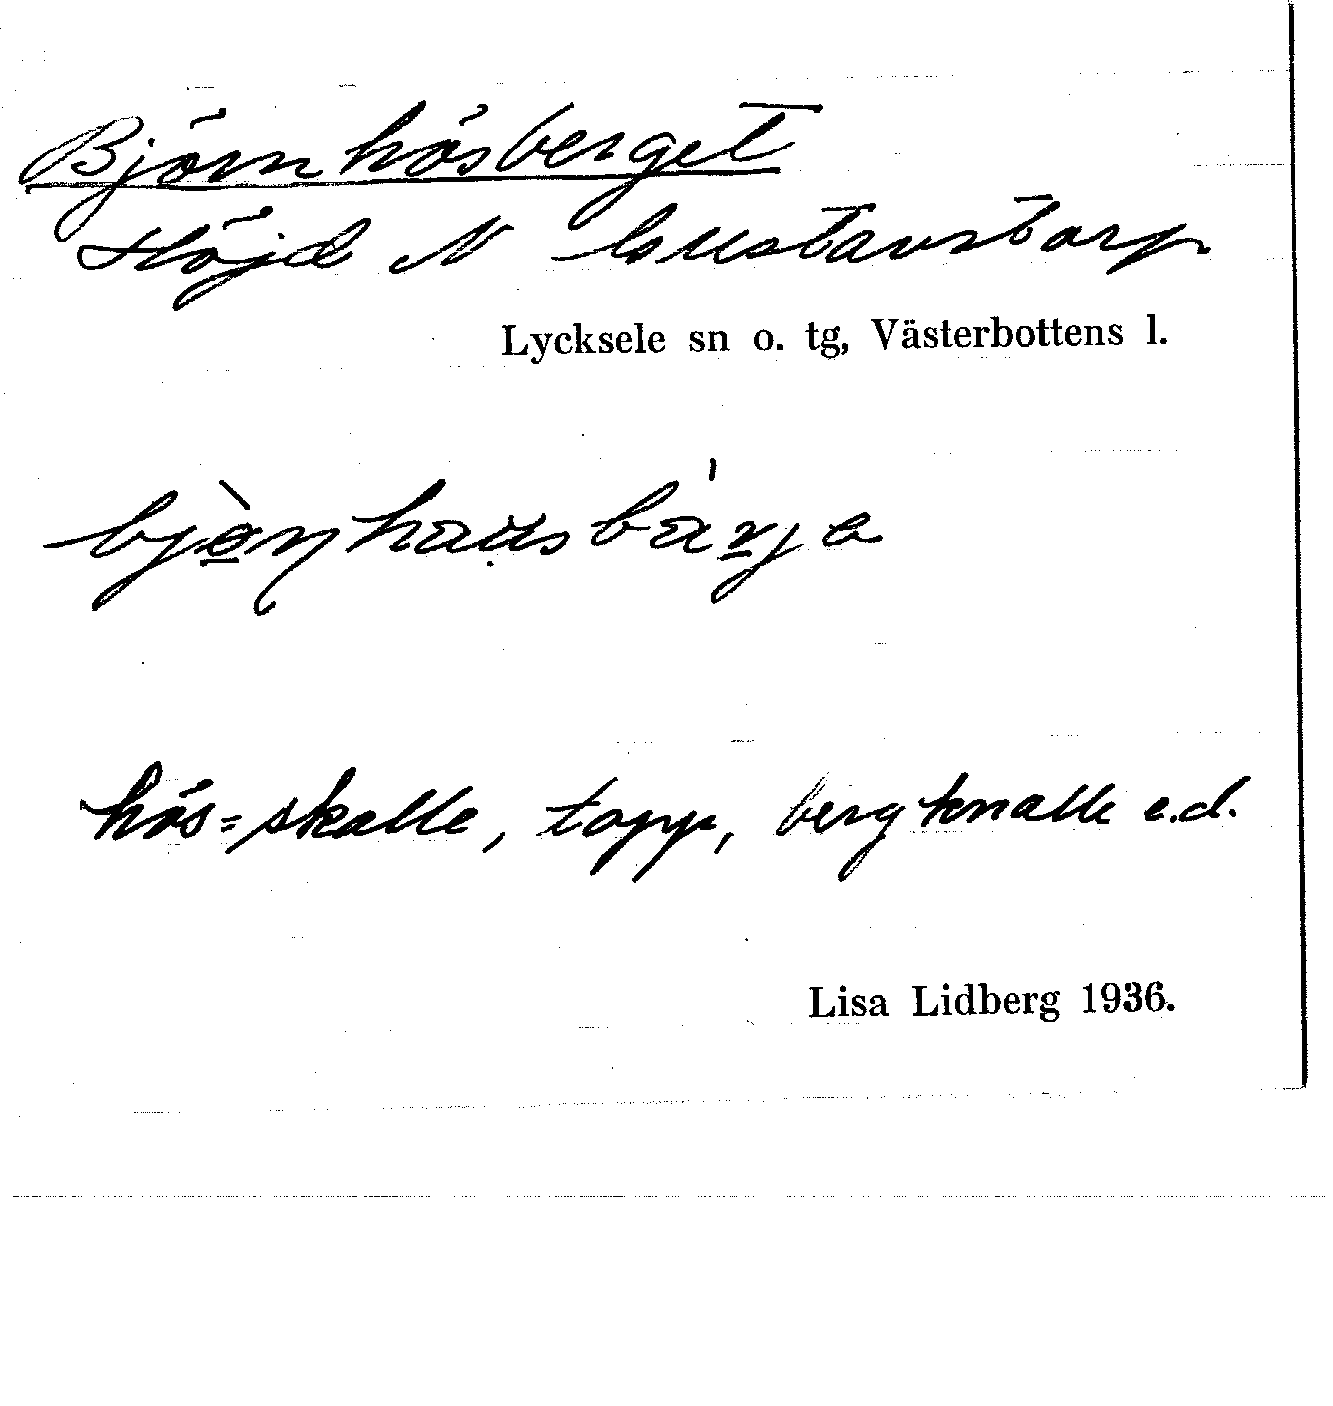 Björnhösberget
Höjd N Gustavstorp
Lycksele sn o. tg, Västerbottens l.
bjònhausbárja
hös=skalle, topp, bergknalle e.d.
Lisa Lidberg 1936.